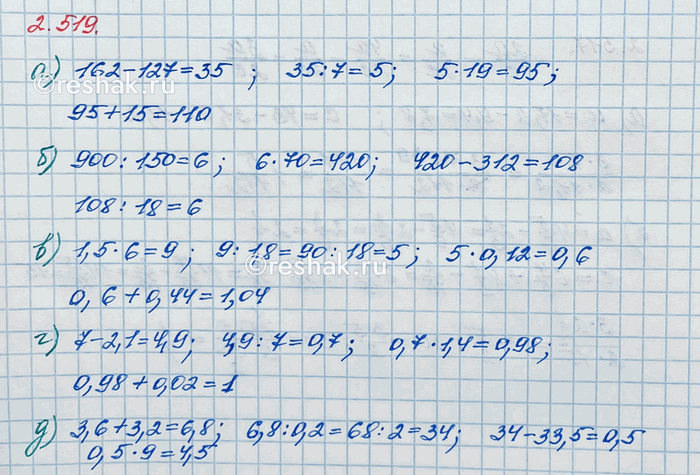 2.519.
а) 162-127=35 ; 35:7=5; 5·19=95;
95+15=110
б) 900:150=6; 6·70=420; 420-312=108
108:18=6
в) 1,5·6=9; 9:1,8=90:18=5; 5·0,12=0,6
0,6+0,44=1,04
г) 7-2,1=4,9; 4,9:7=0,7; 0,7·1,4=0,98;
0,98+0,02=1
д) 3,6+3,2=6,8; 6,8:0,2=68:2=34; 34-33,5=0,5
0,5·9=4,5
©reshak.ru
©reshak.ru